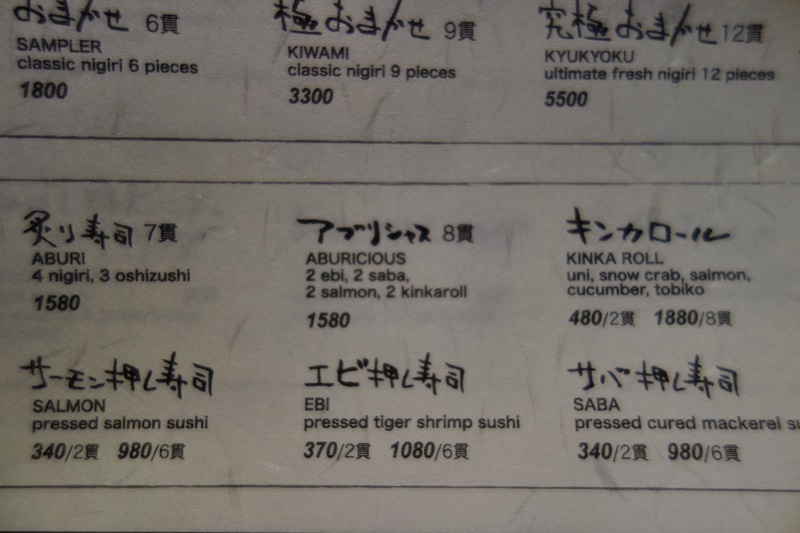 おまかせ 6貫
SAMPLER
classic nigiri 6 pieces
1800
極おまかせ 9貫
KIWAMI
classic nigiri 9 pieces
3300
究極おまかせ 12貫
KYUKYOKU
ultimate fresh nigiri 12 pieces
5500
炙り寿司 7貫
ABURI
4 nigiri, 3 oshizushi
1580
アブリシャス 8貫
ABURICIOUS
2 ebi, 2 saba,
2 salmon, 2 kinkaroll
1580
キンカロール
KINKA ROLL
uni, snow crab, salmon,
cucumber, tobiko
480/2貫 1880/8貫
サーモン押し寿司
SALMON
pressed salmon sushi
340/2貫 980/6貫
エビ押し寿司
EBI
pressed tiger shrimp sushi
370/2貫 1080/6貫
サバ押し寿司
SABA
pressed cured mackerel su
340/2貫 980/6貫